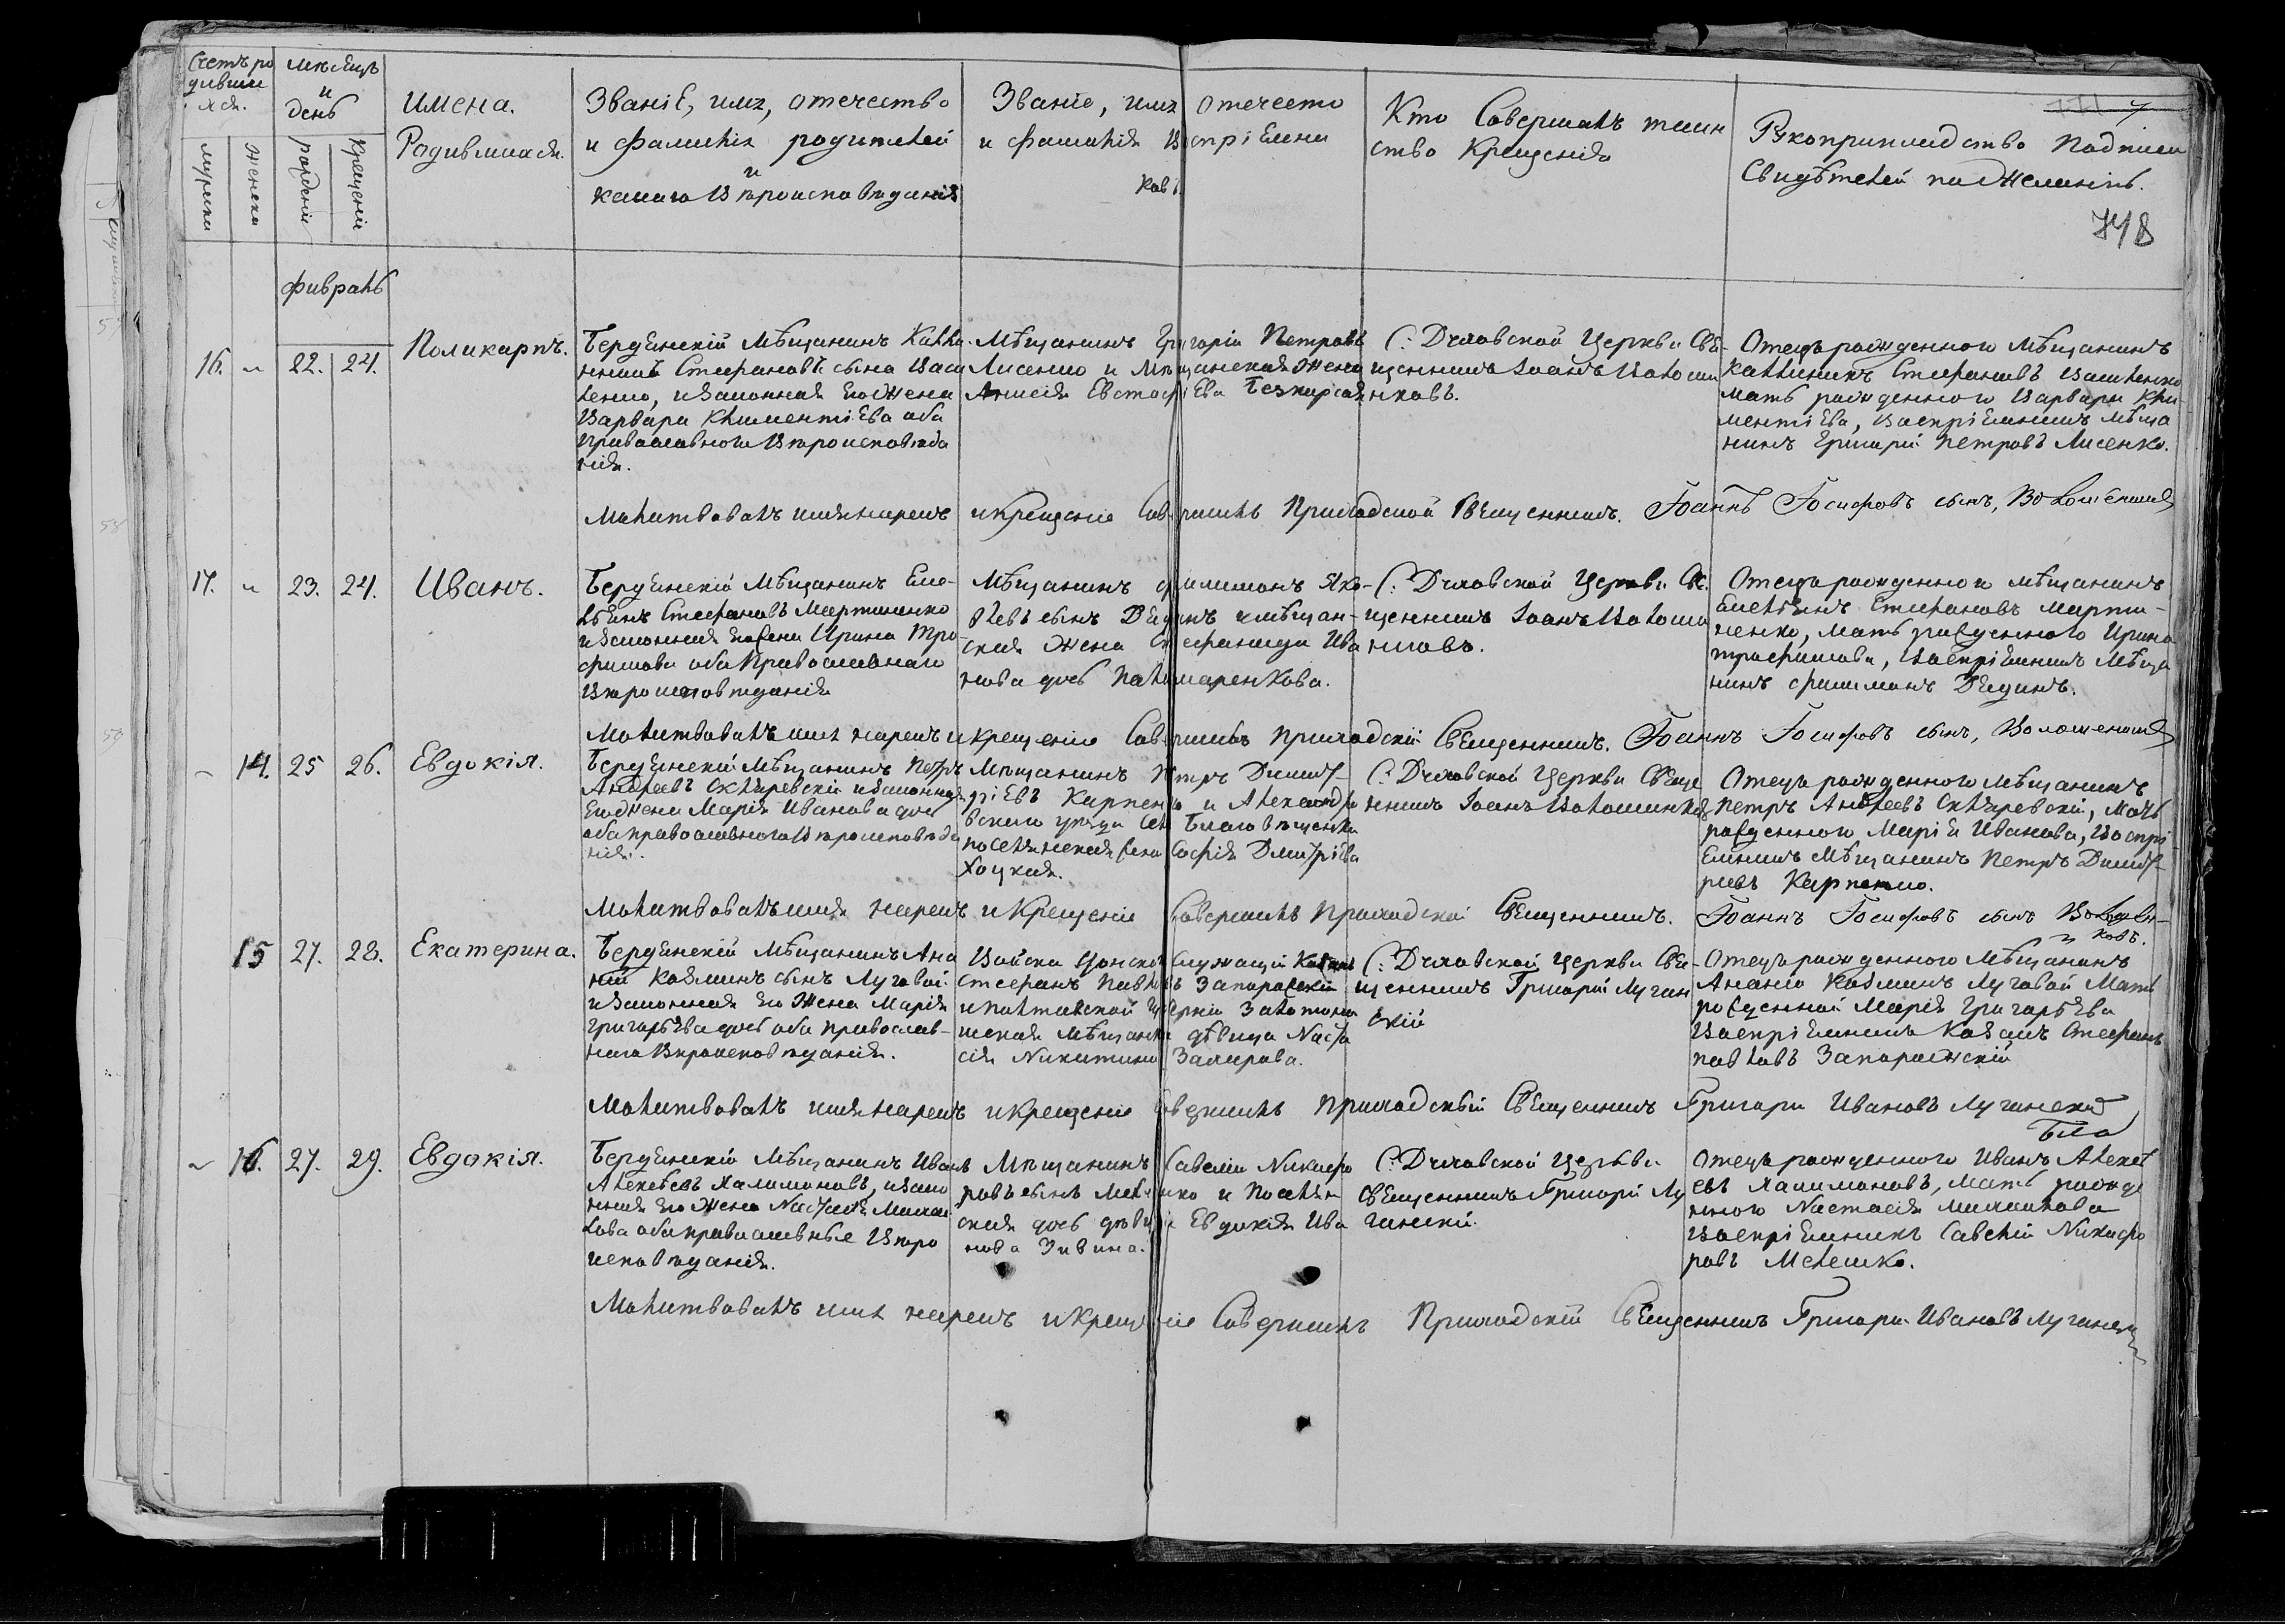 Счетъ ро
дивших
ся.
Мужеска
Женска
мѣсяцъ
и
день
рожденія
крещенія
Имена.
Родившихся.
Званіе, имя, отечество
и фамилія родителей
и
какого вѣроисповѣданія
Званіе, имя отечество
и фамилія воспріемни
ковъ
Кто Совершалъ таин
ство Крещенія
Рукоприкладство подписи
Свидѣтелей по Желанію.
748
февраль
16. 22. 24.
Поликарпъ.
Бердянскій Мѣщанинъ Калли
никъ Стефановъ сынъ Васи
ленко, и законная его Жена
Варвара Климентіева оба
Православного Вѣроисповѣда
нія.
Мѣщанинъ Григорій Петровъ
Лисенко и Мѣщанская Жена
Анисія Евстафіева
С: Дуловской Церкви Свя
щенникъ Іоанъ Волоши
нковъ.
Отецъ рожденного Мѣщанинъ
Каллиникъ Стефановъ Василенко
Мать рожденного Варвара Кли
ментіева, Воспріемникъ Мѣща
нинъ Григорій Петровъ Лисенко.
Молитвовалъ имя нарекъ и крещеніе Совершилъ Приходской Священникъ. Іоаннъ Іосифовъ сынъ, Волошенковъ
17. 23. 24.
Иванъ.
Бердянскій Мѣщанинъ Еме-
льянъ Стефановъ Мартиненко
и законная его жена Ирина Тро
фимова оба Православнаго
Вѣроисповѣданія
Мѣщанинъ Филимонъ Яко-
влевъ сынъ Дѣдинъ и мѣщан-
ская Жена Стефанида Ива
нова дочь Паламаренкова.
С: Дуловской Церкви Свя
щенникъ Іоанъ Волоши
нковъ.
Отецъ рожденного мѣщанинъ
Емельянъ Стефановъ Марти-
ненко, Мать рожденного Ирина
Трофимова, Воспріемникъ Мѣща
нинъ Филимонъ Дѣдинъ.
Молитвовалъ имя нарекъ и крещеніе Совершилъ Приходскій Священникъ. Іоаннъ Іосифовъ сынъ, Волошенковъ
14. 25 26.
Евдокія.
Бердянскій Мѣщанинъ Петръ
Андреевъ Скляревскій и законная
его жена Марія Иванова дочь
оба православного Вѣроисповѣда
нія.
Мѣщанинъ Петръ Димит-
ріевъ Карпенко и Александро
вскаго уѣзда Благовѣщенка
поселянская жена Софія Дмитріева
Хоцкая.
С: Дуловской Церкви Свяще
нникъ Іоанъ Волошинковъ
Отецъ рожденного Мѣщанинъ
Петръ Андреевъ Скляревскій, Мать
рожденного Марія Иванова, Воспрі
емникъ Мѣщанинъ Петръ Димит-
ріевъ Карпенко.
Молитвовалъ имя нарекъ и Крещеніе Совершилъ Приходской Священникъ. Іоаннъ Іосифовъ сынъ Волошен-
ковъ.
15 27. 28.
Екатерина.
Бердянскій Мѣщанинъ Ана
ній Козминъ сынъ Луговой
и законная его Жена Марія
Григорьева дочь оба православ-
наго Вѣроисповѣданія.
Войска Донского Служащій Казакъ
Стефанъ Павловъ Запорожскій
и Полтавской Губерніи Золотоно
шская Мѣщанка дѣвица Наста
сія Никитина
С: Дуловской Церкви Свя-
щенникъ Григорій Луган
скій
Отецъ рожденного Мѣщанинъ
Ананій Козминъ Луговой Мать
рожденной Марія Григорьева
Воспріемникъ Козакъ Стефанъ
Павловъ Запорожскій
Молитвовалъ имя нарекъ и крещеніе Совершилъ приходскій Священникъ Григорій Ивановъ Луганскій
16. 27. 29.
Евдокія.
Бердянскій Мѣщанинъ Иванъ
Алексѣевъ Халимоновъ, и зако
нная его Жена Настасія Михаи
лова оба православные Вѣро
исповѣданія.
Мѣщанинъ Савелій Никифо
ровъ сынъ Мелешко и Поселян
ская дочь дѣвица Евдокія Ива
нова Зивина.
С: Дуловской Церкви
Священникъ Григорій Лу
ганскій.
Отецъ рожденного Иванъ Алексѣ
евъ Халимоновъ, Мать рожде
нного Настасія Михаилова
Воспріемникъ Савелій Никифо
ровъ Мелешко.
Молитвовалъ имя нарекъ и Крещеніе Совершилъ Приходскій Священникъ Григорій Ивановъ Луганскій